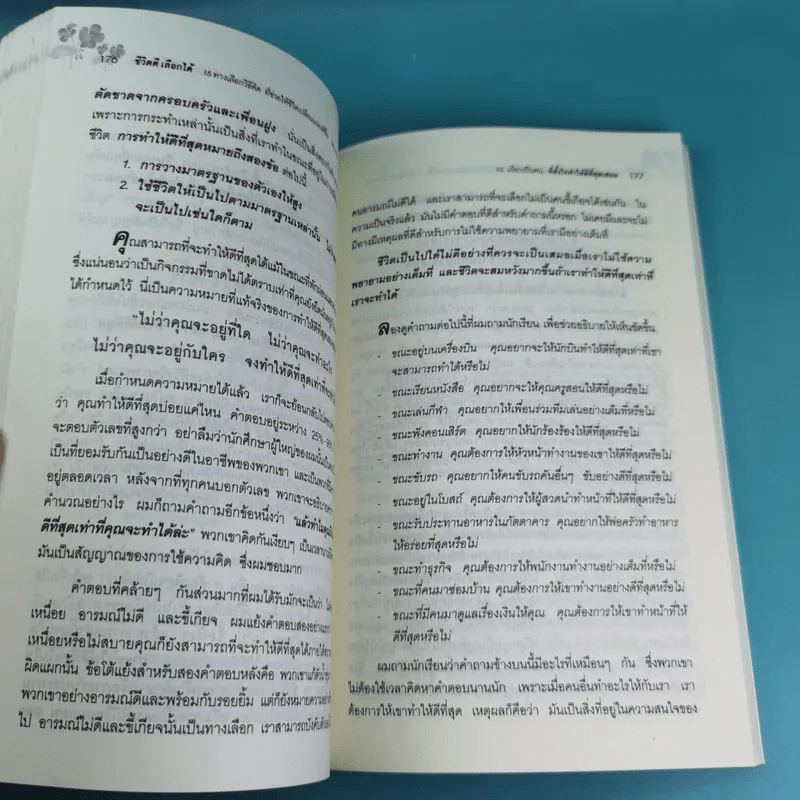 176 ชีวิตดี เลือกได้ 15 ทางเลือกวิธีคิด
ตัดขาดจากครอบครัวและเพื่อนฝูง นั่นเป็นสิ่งสุดท้าย
เพราะการกระทำเหล่านั้นเป็นสิ่งที่เราทำในขณะที่อยู่ใน
ชีวิต การทำให้ดีที่สุดหมายถึงสองข้อ ต่อไปนี้
1. การวางมาตรฐานของตัวเองให้สูง
2. ใช้ชีวิตให้เป็นไปตามมาตรฐานเหล่านั้น
จะเป็นไปเช่นใดก็ตาม
คุณสามารถที่จะทำให้ดีที่สุดได้แม้ในขณะที่พักผ่อน
ซึ่งแน่นอนว่าเป็นกิจกรรมที่ขาดไม่ได้ตราบเท่าที่คุณยังยึดมั่น
ได้กำหนดไว้ นี่เป็นความหมายที่แท้จริงของการทำให้ดีที่สุด
"ไม่ว่าคุณจะอยู่ที่ใด ไม่ว่าคุณจะทำอะไร
ไม่ว่าคุณจะอยู่กับใคร จงทำให้ดีที่สุดเท่าที่
เมื่อกำหนดความหมายได้แล้ว เราก็จะย้อนกลับไป
ว่า คุณทำให้ดีที่สุดบ่อยแค่ไหน คำตอบอยู่ระหว่าง 25%-
จะตอบตัวเลขที่สูงกว่า อย่าลืมว่านักศึกษาผู้ใหญ่ของผมนั้น
เป็นที่ยอมรับกันเป็นอย่างดีในอาชีพของพวกเขา และเป็นพวกที่
อยู่ตลอดเวลา หลังจากที่ทุกคนบอกตัวเลข พวกเขาจะอธิบาย
คำนวณอย่างไร ผมก็ถามคำถามอีกข้อหนึ่งว่า "แล้วทำไม
ดีที่สุดเท่าที่คุณจะทำได้ล่ะ" พวกเขาคิดกันเงียบๆ เป็นเวลา
มันเป็นสัญญาณของการใช้ความคิด ซึ่งผมชอบมาก
คำตอบที่คล้ายๆ กันส่วนมากที่ผมได้รับมักจะเป็นว่า
เหนื่อย อารมณ์ไม่ดี และขี้เกียจ ผมแย้งคำตอบสองอย่างแรก
เหนื่อยหรือไม่สบายคุณก็ยังสามารถที่จะทำให้ดีที่สุดได้ภายใต้
ผิดแผกนั้น ข้อโต้แย้งสำหรับสองคำตอบหลังคือ พวกเขา
พวกเขาอย่างอารมณ์ดีและพร้อมกับรอยยิ้ม แต่ก็ยังหมายความ
ไป อารมณ์ไม่ดีและขี้เกียจนั้นเป็นทางเลือก เราสามารถบังคับ
๑๕ เลือกเป็นคน ที่ตั้งใจทำให้ดีที่สุดเสมอ 177
คนอารมณ์ไม่ดีได้ และเราสามารถที่จะเลือกไม่เป็นคนขี้เกียจได้เช่นกัน ใน
ความเป็นจริงแล้ว มันไม่มีคำตอบที่ดีสำหรับคำถามนี้หรอก ไม่เคยมีและจะไม่
มีทางมีเหตุผลที่ดีสำหรับการไม่ใช้ความพยายามที่เรามีอย่างเต็มที่
ชีวิตเป็นไปได้ไม่ดีอย่างที่ควรจะเป็นเสมอเมื่อเราไม่ใช้ความ
พยายามอย่างเต็มที่ และชีวิตจะสมหวังมากขึ้นถ้าเราทำให้ดีที่สุดเท่าที่
เราจะทำได้
ลองดูคำถามต่อไปนี้ที่ผมถามนักเรียน เพื่อช่วยอธิบายให้เห็นชัดขึ้น
- ขณะอยู่บนเครื่องบิน คุณอยากจะให้นักบินทำให้ดีที่สุดเท่าที่เขา
จะสามารถทำได้หรือไม่
- ขณะเรียนหนังสือ คุณอยากจะให้คุณครูสอนให้ดีที่สุดหรือไม่
- ขณะเล่นกีฬา คุณอยากให้เพื่อนร่วมทีมเล่นอย่างเต็มที่หรือไม่
- ขณะฟังคอนเสิร์ต คุณอยากให้นักร้องร้องให้ดีที่สุดหรือไม่
- ขณะทำงาน คุณต้องการให้หัวหน้าทำงานของเขาให้ดีที่สุดหรือไม่
- ขณะขับรถ คุณอยากให้คนขับรถคันอื่นๆ ขับอย่างดีที่สุดหรือไม่
- ขณะอยู่ในโบสถ์ คุณต้องการให้ผู้สวดนำทำหน้าที่ให้ดีที่สุดหรือไม่
- ขณะรับประทานอาหารในภัตตาคาร คุณอยากให้พ่อครัวทำอาหาร
ให้อร่อยที่สุดหรือไม่
- ขณะทำธุรกิจ คุณต้องการให้พนักงานทำงานอย่างเต็มที่หรือไม่
- ขณะที่คนมาซ่อมบ้าน คุณต้องการให้เขาทำงานอย่างดีที่สุดหรือไม่
- ขณะที่มีคนมาดูแลเรื่องเงินให้คุณ คุณต้องการให้เขาทำหน้าที่ให้
ดีที่สุดหรือไม่
ผมถามนักเรียนว่าคำถามข้างบนนี้มีอะไรที่เหมือนๆ กัน ซึ่งพวกเขา
ไม่ต้องใช้เวลาคิดหาคำตอบนานนัก เพราะเมื่อคนอื่นทำอะไรให้กับเรา เรา
ต้องการให้เขาทำให้ดีที่สุด เหตุผลก็คือว่า มันเป็นสิ่งที่อยู่ในความสนใจของ